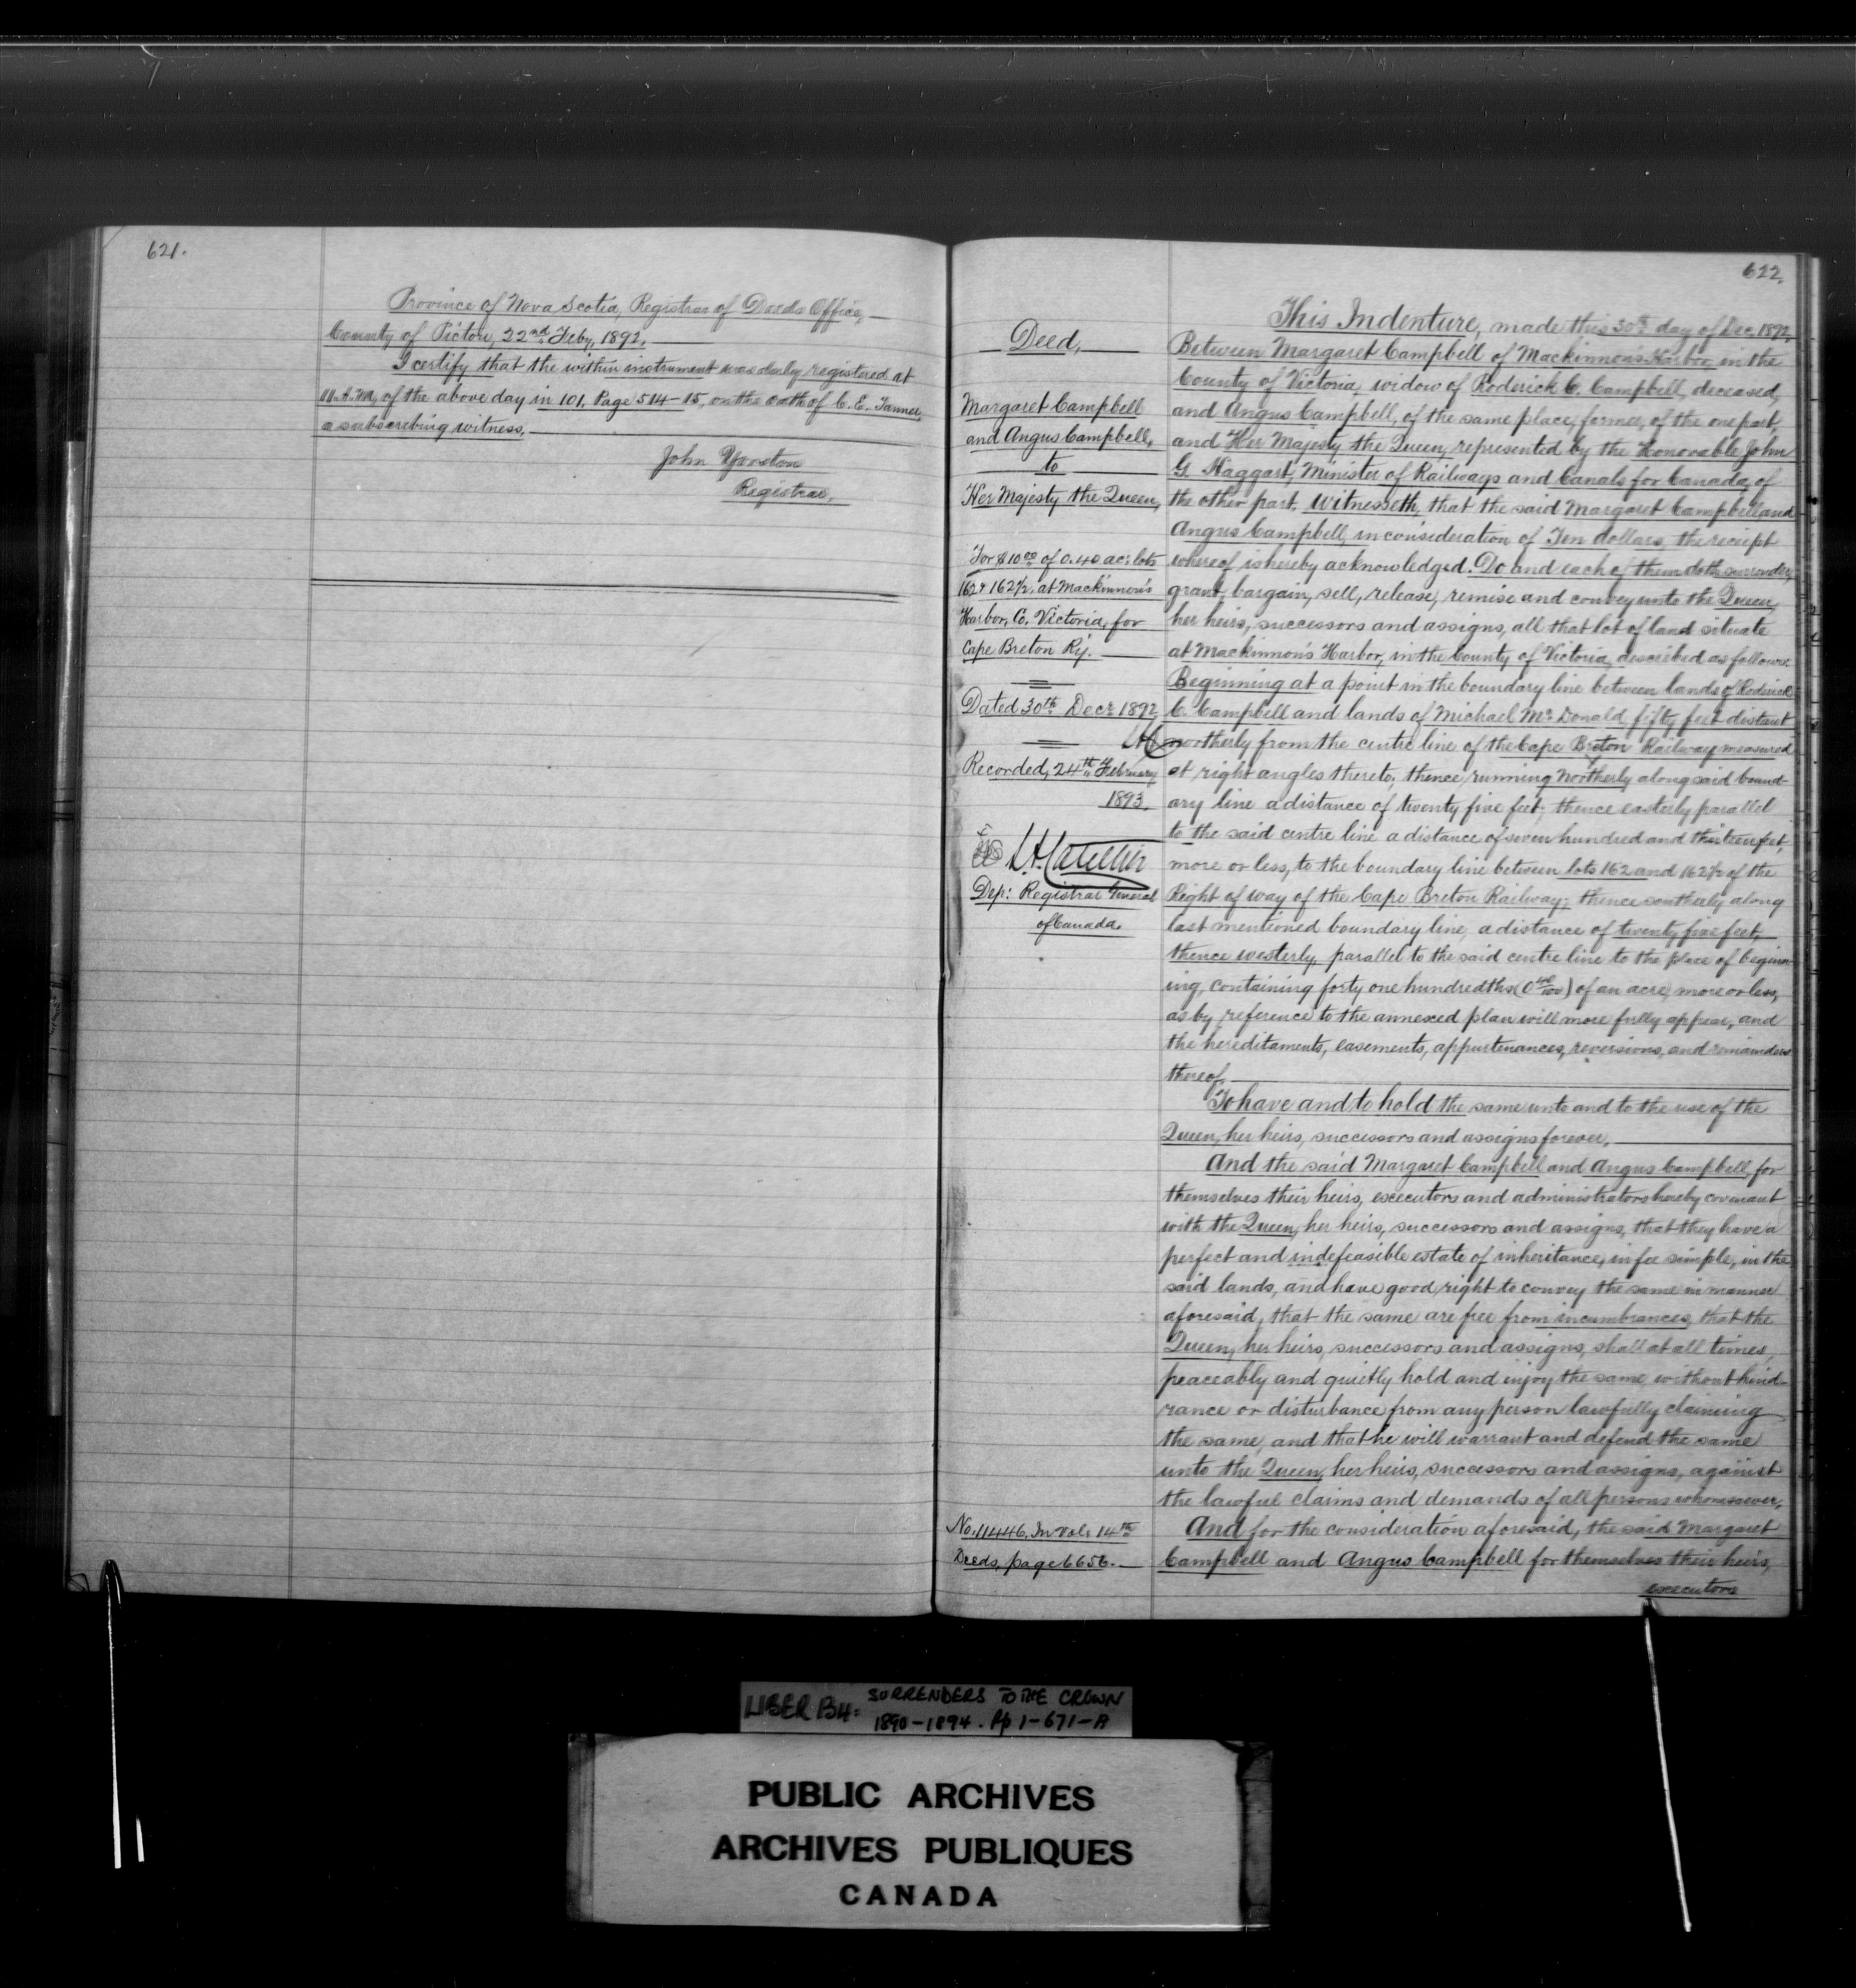 621.
Province of Nova Scotia, Registrar of Deeds Office,
County of Pictou, 22nd Feby, 1892.
I certify that the within instrument was duly registered at
11. A.M, of the above day in 101, Page 514-15, on the oath of C. E. Tanner,
a subscribing witness.
John Yorston
Registrar.
622.
Deed,
Margaret Campbell
and Angus Campbell,
to
Her Majesty the Queen,
For $10.00 of 0.40 ac: lots
162 & 162 1/2, at Mackinnon's
Harbor, Co. Victoria, for
Cape Breton Ry.
Dated 30th Decr 1892
Recorded, 24th February
1893.
Dep: Registrar General
of Canada.
No. 11446, In Vol: 14th
Deeds, page 6656.
This Indenture, made this 30th day of Dec, 1892,
Between Margaret Campbell of Mackinnon's Harbor, in the
County of Victoria, widow of Roderick C. Campbell, deceased,
and Angus Campbell, of the same place, farmer, of the one part,
and Her Majesty the Queen, represented by the Honorable John
G. Haggart, Minister of Railways and Canals for Canada, of
the other part. Witnesseth, that the said Margaret Campbell and
Angus Campbell, in consideration of Ten dollars, the receipt
whereof is hereby acknowledged. Do and each of them doth surrender,
grant, bargain, sell, release, remise and convey unto the Queen,
her heirs, successors and assigns, all that lot of land situate
at Mackinnon's Harbor, in the County of Victoria, described as follows:
Beginning at a point in the boundary line between lands of Roderick
C. Campbell and lands of Michael McDonald, fifty feet distant
northerly from the centre line of the Cape Breton Railway measured
at right angles thereto; thence running Northerly along said bound-
ary line a distance of twenty five feet; thence easterly parallel
to the said centre line a distance of seven hundred and thirteen feet,
more or less, to the boundary line between lots 162 and 162 1/2 of the
Right of way of the Cape Breton Railway; thence southerly along
last mentioned boundary line, a distance of twenty five feet,
thence westerly, parallel to the said centre line to the place of beginn-
ing, containing forty one hundredths (0 40/100) of an acre, more or less,
as by reference to the annexed plan will more fully appear, and
the hereditaments, easements, appurtenances, reversions, and remainders
thereof
To have and to hold the same unto and to the use of the
Queen, her heirs, successors and assigns forever.
And the said Margaret Campbell and Angus Campbell, for
themselves their heirs, executors and administrators hereby covenant
with the Queen, her heirs, successors and assigns, that they have a
perfect and indefeasible estate of inheritance, in fee simple, in the
said lands, and have good right to convey the same in manner
aforesaid, that the same are free from incumbrances, that the
Queen, her heirs, successors and assigns, shall at all times,
peaceably and quietly hold and injoy the same, without hind-
rance or disturbance from any person lawfully claiming
the same, and that he will warrant and defend the same
unto the Queen, her heirs, successors and assigns, against
the lawful claims and demands of all persons whomsoever,
And for the consideration aforesaid, the said Margaret
Campbell and Angus Campbell for themselves their heirs,
executors
LIBER B4: SURRENDERS TO THE CROWN
1890-1894. Pp 1-671-A
PUBLIC ARCHIVES
ARCHIVES PUBLIQUES
CANADA